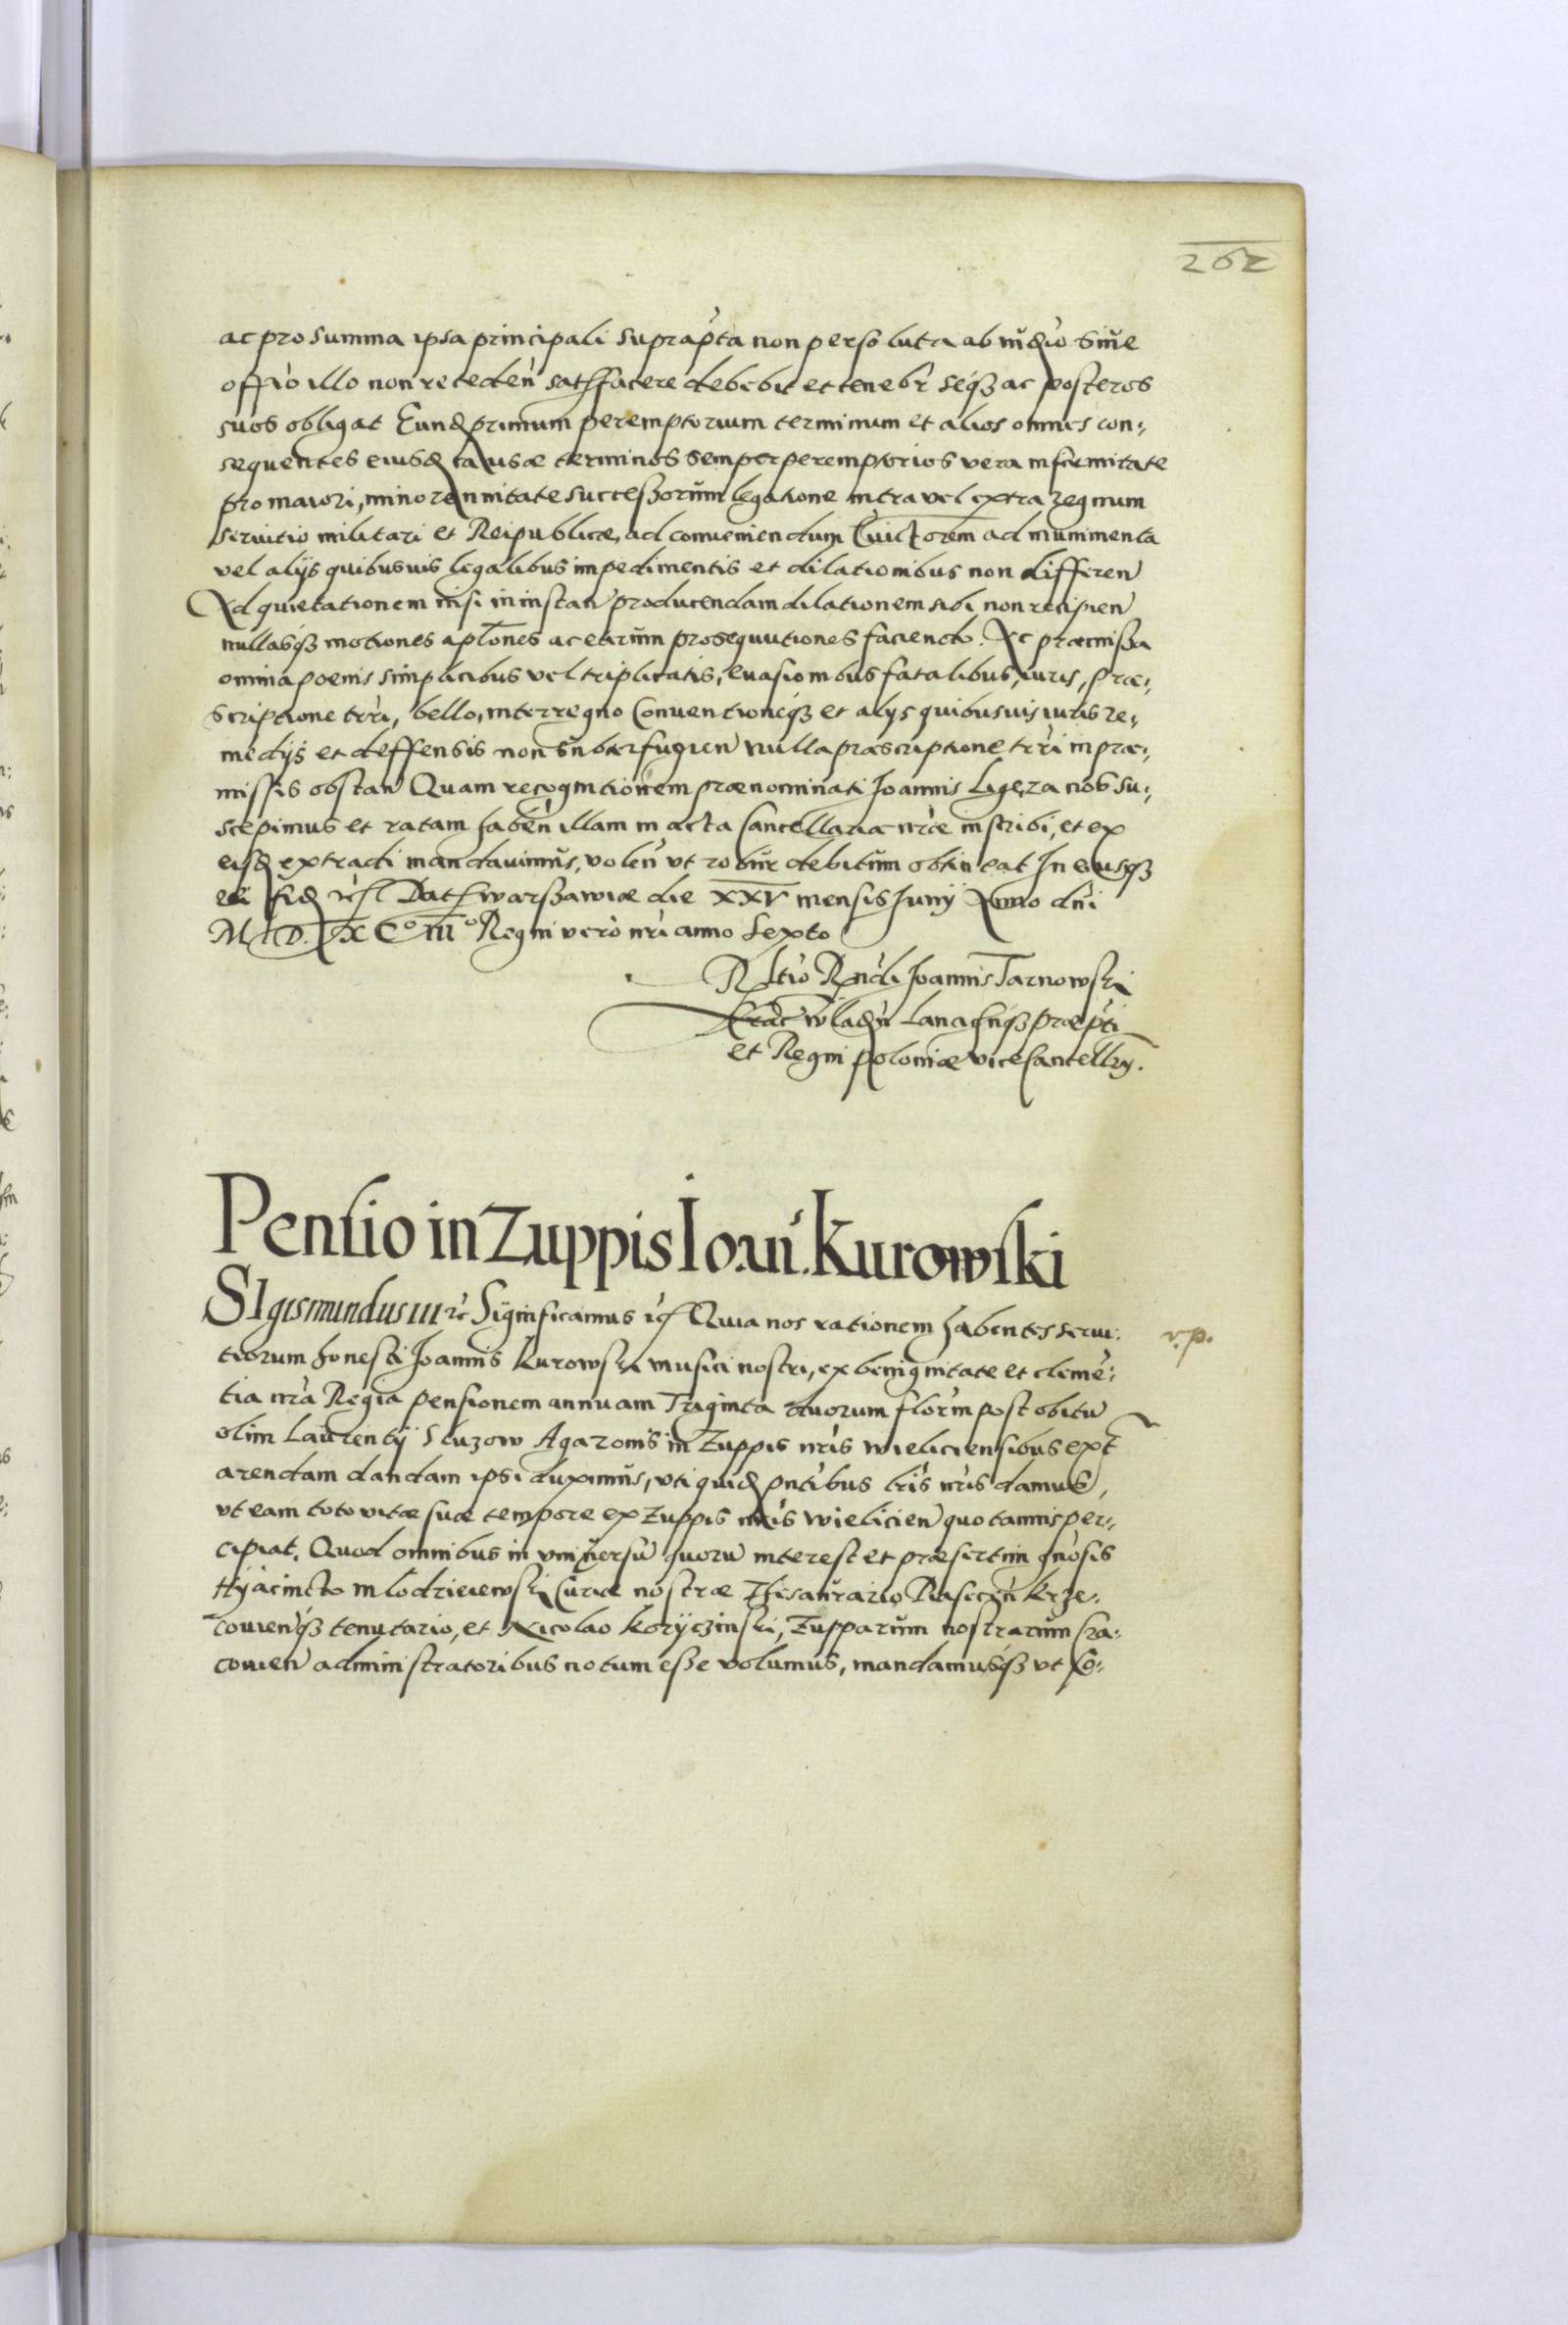 262
ac pro summa ipsa principali suprapta non persoluta ab iudio siue
offio illo non receden satisfacere debebit et tenebr seqz ac posteros
suos obligat Eund primum peremptorium terminum et alios omnes con:
sequentes eiusd causæ terminos semper peremptorios vera infirmitate
pro maiori, minorennitate successorum legatione intra vel extra regnum
servitio militari et Reipublicæ, ad conueniendum Euictorem ad munimenta
vel alijs quibusuis legalibus impedimentis et dilationibus non differen
Ad quietationem nisi in instan producendam dilationem sibi non recipien
nullasqz motiones aplones ac earum prosequutiones faciendo. Ac præmissa
omnia poenis simplicibus vel triplicatis, euasionibus fatalibus, iuris, præ:
scriptione trri, bello, interregno Conventioneqz et alys quibusuis iuris re:
medijs et deffensis non subterfugien nulla præscriptione trri in præ:
missis obstan Quam recognitionem prænominati Joannis Ligeza nos su:
scepimus et ratam haben illam in acta Cancellariæ nræ inscribi, et ex
eisd extradi mandauimus, volen vt robur debitum obtineat In cuiusqz
rei fid Dat Warssawiæ die XXV mensis Junij Anno dni
M. D. XCo IIIo Regni vero nri anno Sexto
Rltio Rndi Joannis Tarnowski
Crac Wladn Lanciciqz præpti
et Regni Poloniæ vicecancellry.
Pensio in Zuppis Ioan. Kurowski
SIgismundus III rc Significamus Quia nos rationem habentes serui:
v.p.
tiorum honesti Joannis Kurowski musici nostri, ex benignitate et clemē:
tia nra Regia pensionem annuam Triginta florin post obitū
olim Laurentij Sluzow Agazonis in Zuppis nris Wieliciensibus ext
arendam dandam ipsi duximus, vti quid pntibus lris nris damus,
vt eam toto vitæ suæ tempore ex Zuppis nris Wielicien quotannis per:
cipiat. Quod omnibus in vniuersū quorū interest et præsertim gnosis
Hyacincto Mlodzieiewski Curiæ nostræ Thesaurario, Krze:
couienqz tenutario, et Nicolao Koryczinski, Zupparum nostrarum Cra:
couien administratoribus notum esse volumus, mandamusqz vt